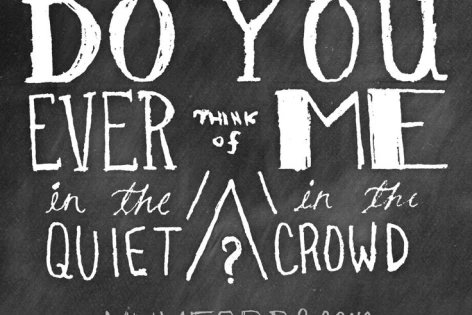 DO YOU
EVER THINK of ME
in the in the
QUIET ? CROWD